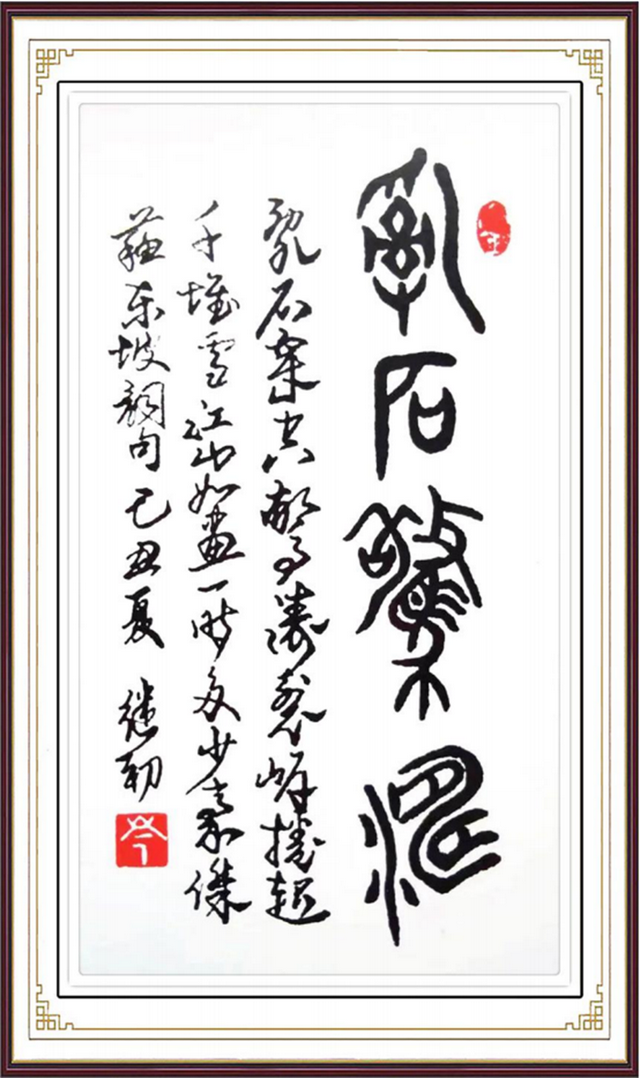 亂石驚濤
亂石穿空驚濤裂岸捲起
千堆雪江山如畫一時多少豪傑
蘇东坡詞句己丑夏 继